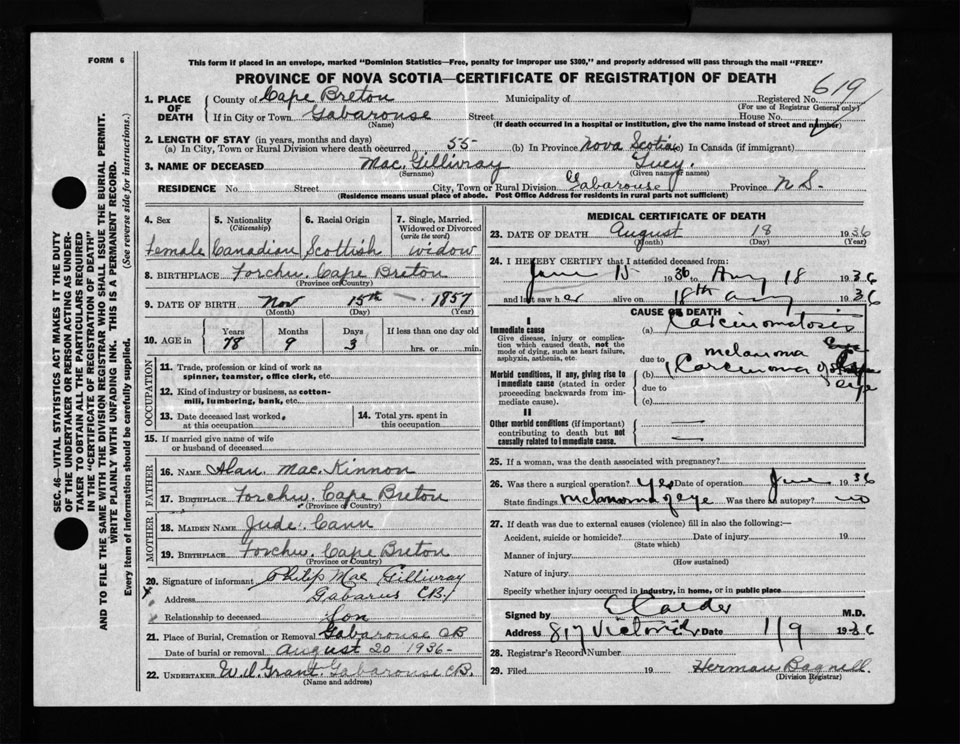 FORM 6
This form if placed in an envelope, marked "Dominion Statistics—Free, penalty for improper use $300," and properly addressed will pass through the mail "FREE"
PROVINCE OF NOVA SCOTIA—CERTIFICATE OF REGISTRATION OF DEATH
619
1. PLACE OF DEATH County of Cape Breton Municipality of Registered No.
(For use of Registrar General only)
If in City or Town Gabarouse Street House No.
(Name) (If death occurred in a hospital or institution, give the name instead of street and number)
2. LENGTH OF STAY (in years, months and days)
(a) In City, Town or Rural Division where death occurred 55 (b) In Province Nova Scotia (c) In Canada (if immigrant)
3. NAME OF DECEASED Mac Gillivray Lucy.
(Surname) (Given name or names)
RESIDENCE No. Street City, Town or Rural Division Gabarouse Province N S.
(Residence means usual place of abode. Post Office Address for residents in rural parts not sufficient)
4. Sex 5. Nationality (Citizenship) 6. Racial Origin 7. Single, Married, Widowed or Divorced (write the word)
Female Canadian Scottish Widow
8. BIRTHPLACE Forchu, Cape Breton
(Province or Country)
9. DATE OF BIRTH Nov 15th 1857
(Month) (Day) (Year)
10. AGE in Years Months Days If less than one day old
78 9 3 hrs. or min.
OCCUPATION
11. Trade, profession or kind of work as spinner, teamster, office clerk, etc.
12. Kind of industry or business, as cotton-mill, lumbering, bank, etc.
13. Date deceased last worked at this occupation 14. Total yrs. spent in this occupation
15. If married give name of wife or husband of deceased
FATHER
16. NAME Alan Mac Kinnon
17. BIRTHPLACE Forchu. Cape Breton
(Province or Country)
MOTHER
18. MAIDEN NAME Jude Cann
19. BIRTHPLACE Forchu. Cape Breton
(Province or Country)
20. Signature of informant Philip Mac Gillivray
Address Gabarus CB.
Relationship to deceased Son
21. Place of Burial, Cremation or Removal Gabarouse CB
Date of burial or removal August 20 1936-
22. UNDERTAKER Grant Gabarouse CB.
(Name and address)
MEDICAL CERTIFICATE OF DEATH
23. DATE OF DEATH August 18 1936
(Month) (Day) (Year)
24. I HEREBY CERTIFY that I attended deceased from:
June 15 1936 to Aug 18 1936
and last saw her alive on 18th Aug 1936
CAUSE OF DEATH
I
Immediate cause (a) Carcinomatosis
Give disease, injury or complication which caused death, not the mode of dying, such as heart failure, asphyxia, asthenia, etc.
due to melanoma
Morbid conditions, if any, giving rise to immediate cause (stated in order proceeding backwards from immediate cause). (b) Carcinoma of eye
due to
(c)
II
Other morbid conditions (if important) contributing to death but not causally related to immediate cause.
25. If a woman, was the death associated with pregnancy?
26. Was there a surgical operation? Yes Date of operation June 1936
State findings melanoma of eye Was there an autopsy? no
27. If death was due to external causes (violence) fill in also the following:—
Accident, suicide or homicide? Date of injury 19
(State which)
Manner of injury
(How sustained)
Nature of injury
Specify whether injury occurred in industry, in home, or in public place
Signed by M.D.
Address 817 Victoria Date 1/9 1936
28. Registrar's Record Number
29. Filed 19 Herman Bagnell.
(Division Registrar)
SEC. 46—VITAL STATISTICS ACT MAKES IT THE DUTY
OF THE UNDERTAKER OR PERSON ACTING AS UNDER-
TAKER TO OBTAIN ALL THE PARTICULARS REQUIRED
IN THE "CERTIFICATE OF REGISTRATION OF DEATH"
AND TO FILE THE SAME WITH THE DIVISION REGISTRAR WHO SHALL ISSUE THE BURIAL PERMIT.
WRITE PLAINLY WITH UNFADING INK. THIS IS A PERMANENT RECORD.
Every item of information should be carefully supplied. (See reverse side for instructions.)